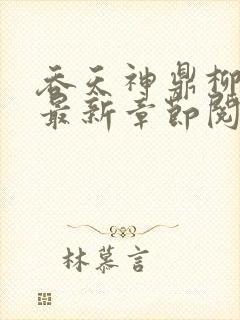 吞天神鼎柳
最新章节阅
林慕言